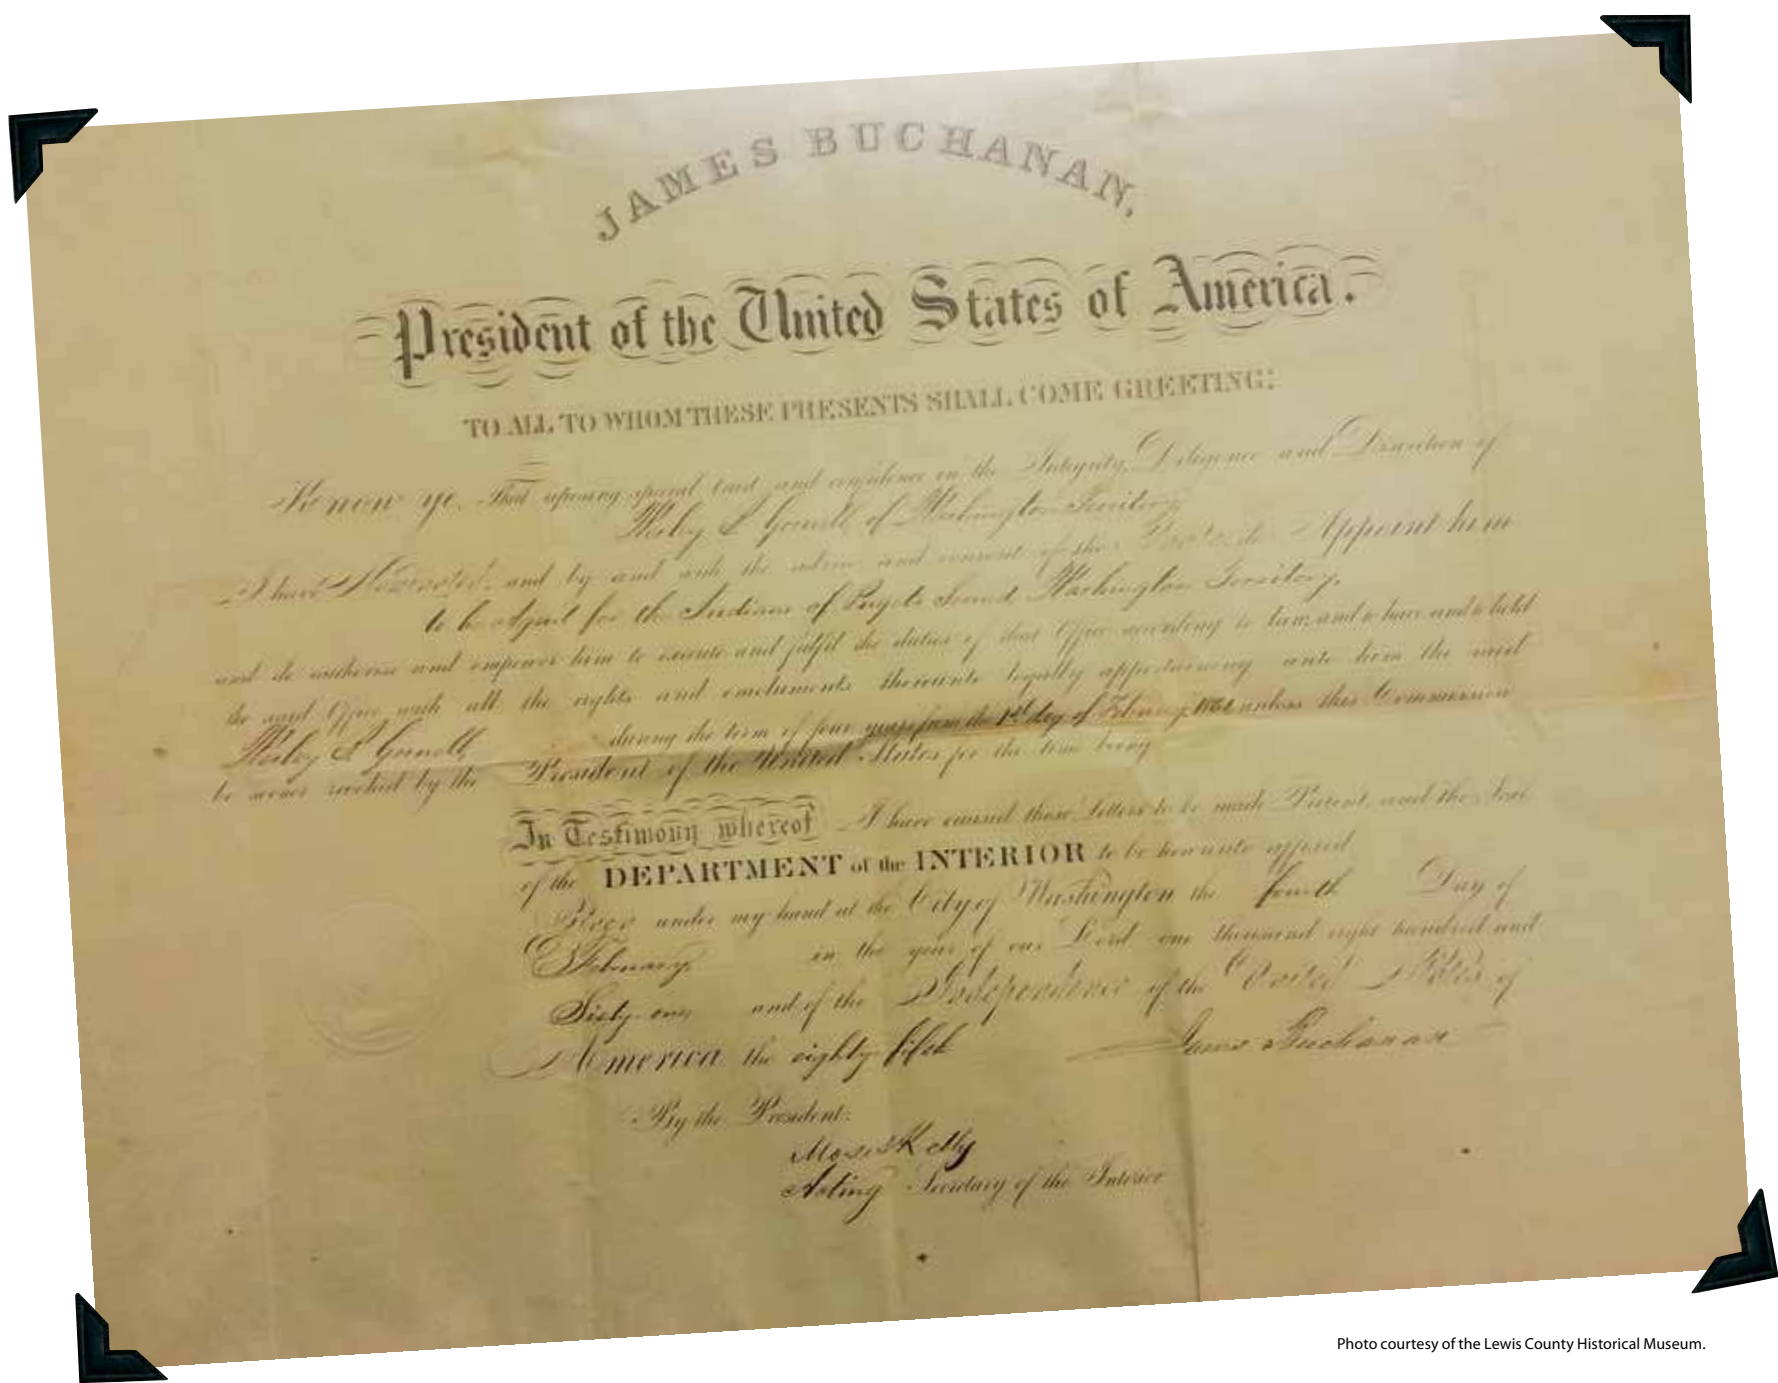 JAMES BUCHANAN,
President of the United States of America.
TO ALL TO WHOM THESE PRESENTS SHALL COME GREETING:
Know ye, That reposing special trust and confidence in the Integrity, Diligence and Discretion of
of Washington Territory
I have Nominated, and by and with the advice and consent of the Senate do Appoint him
to be Agent for the Indians of Pugets Sound, Washington Territory,
and do authorize and empower him to execute and fulfil the duties of that Office according to law; and to have and to hold
the said Office with all the rights and emoluments thereunto legally appertaining unto him the said
during the term of four years from the 1st day of February, 1861 unless this Commission
be sooner revoked by the President of the United States for the time being
In Testimony whereof I have caused these Letters to be made Patent, and the Seal
of the DEPARTMENT of the INTERIOR to be hereunto affixed
Given under my hand at the City of Washington the fourth Day of
February in the year of our Lord one thousand eight hundred and
Sixty one and of the Independence of the United States of
America the eighty fifth
James Buchanan
By the President:
Moses Kelly
Acting Secretary of the Interior
Photo courtesy of the Lewis County Historical Museum.